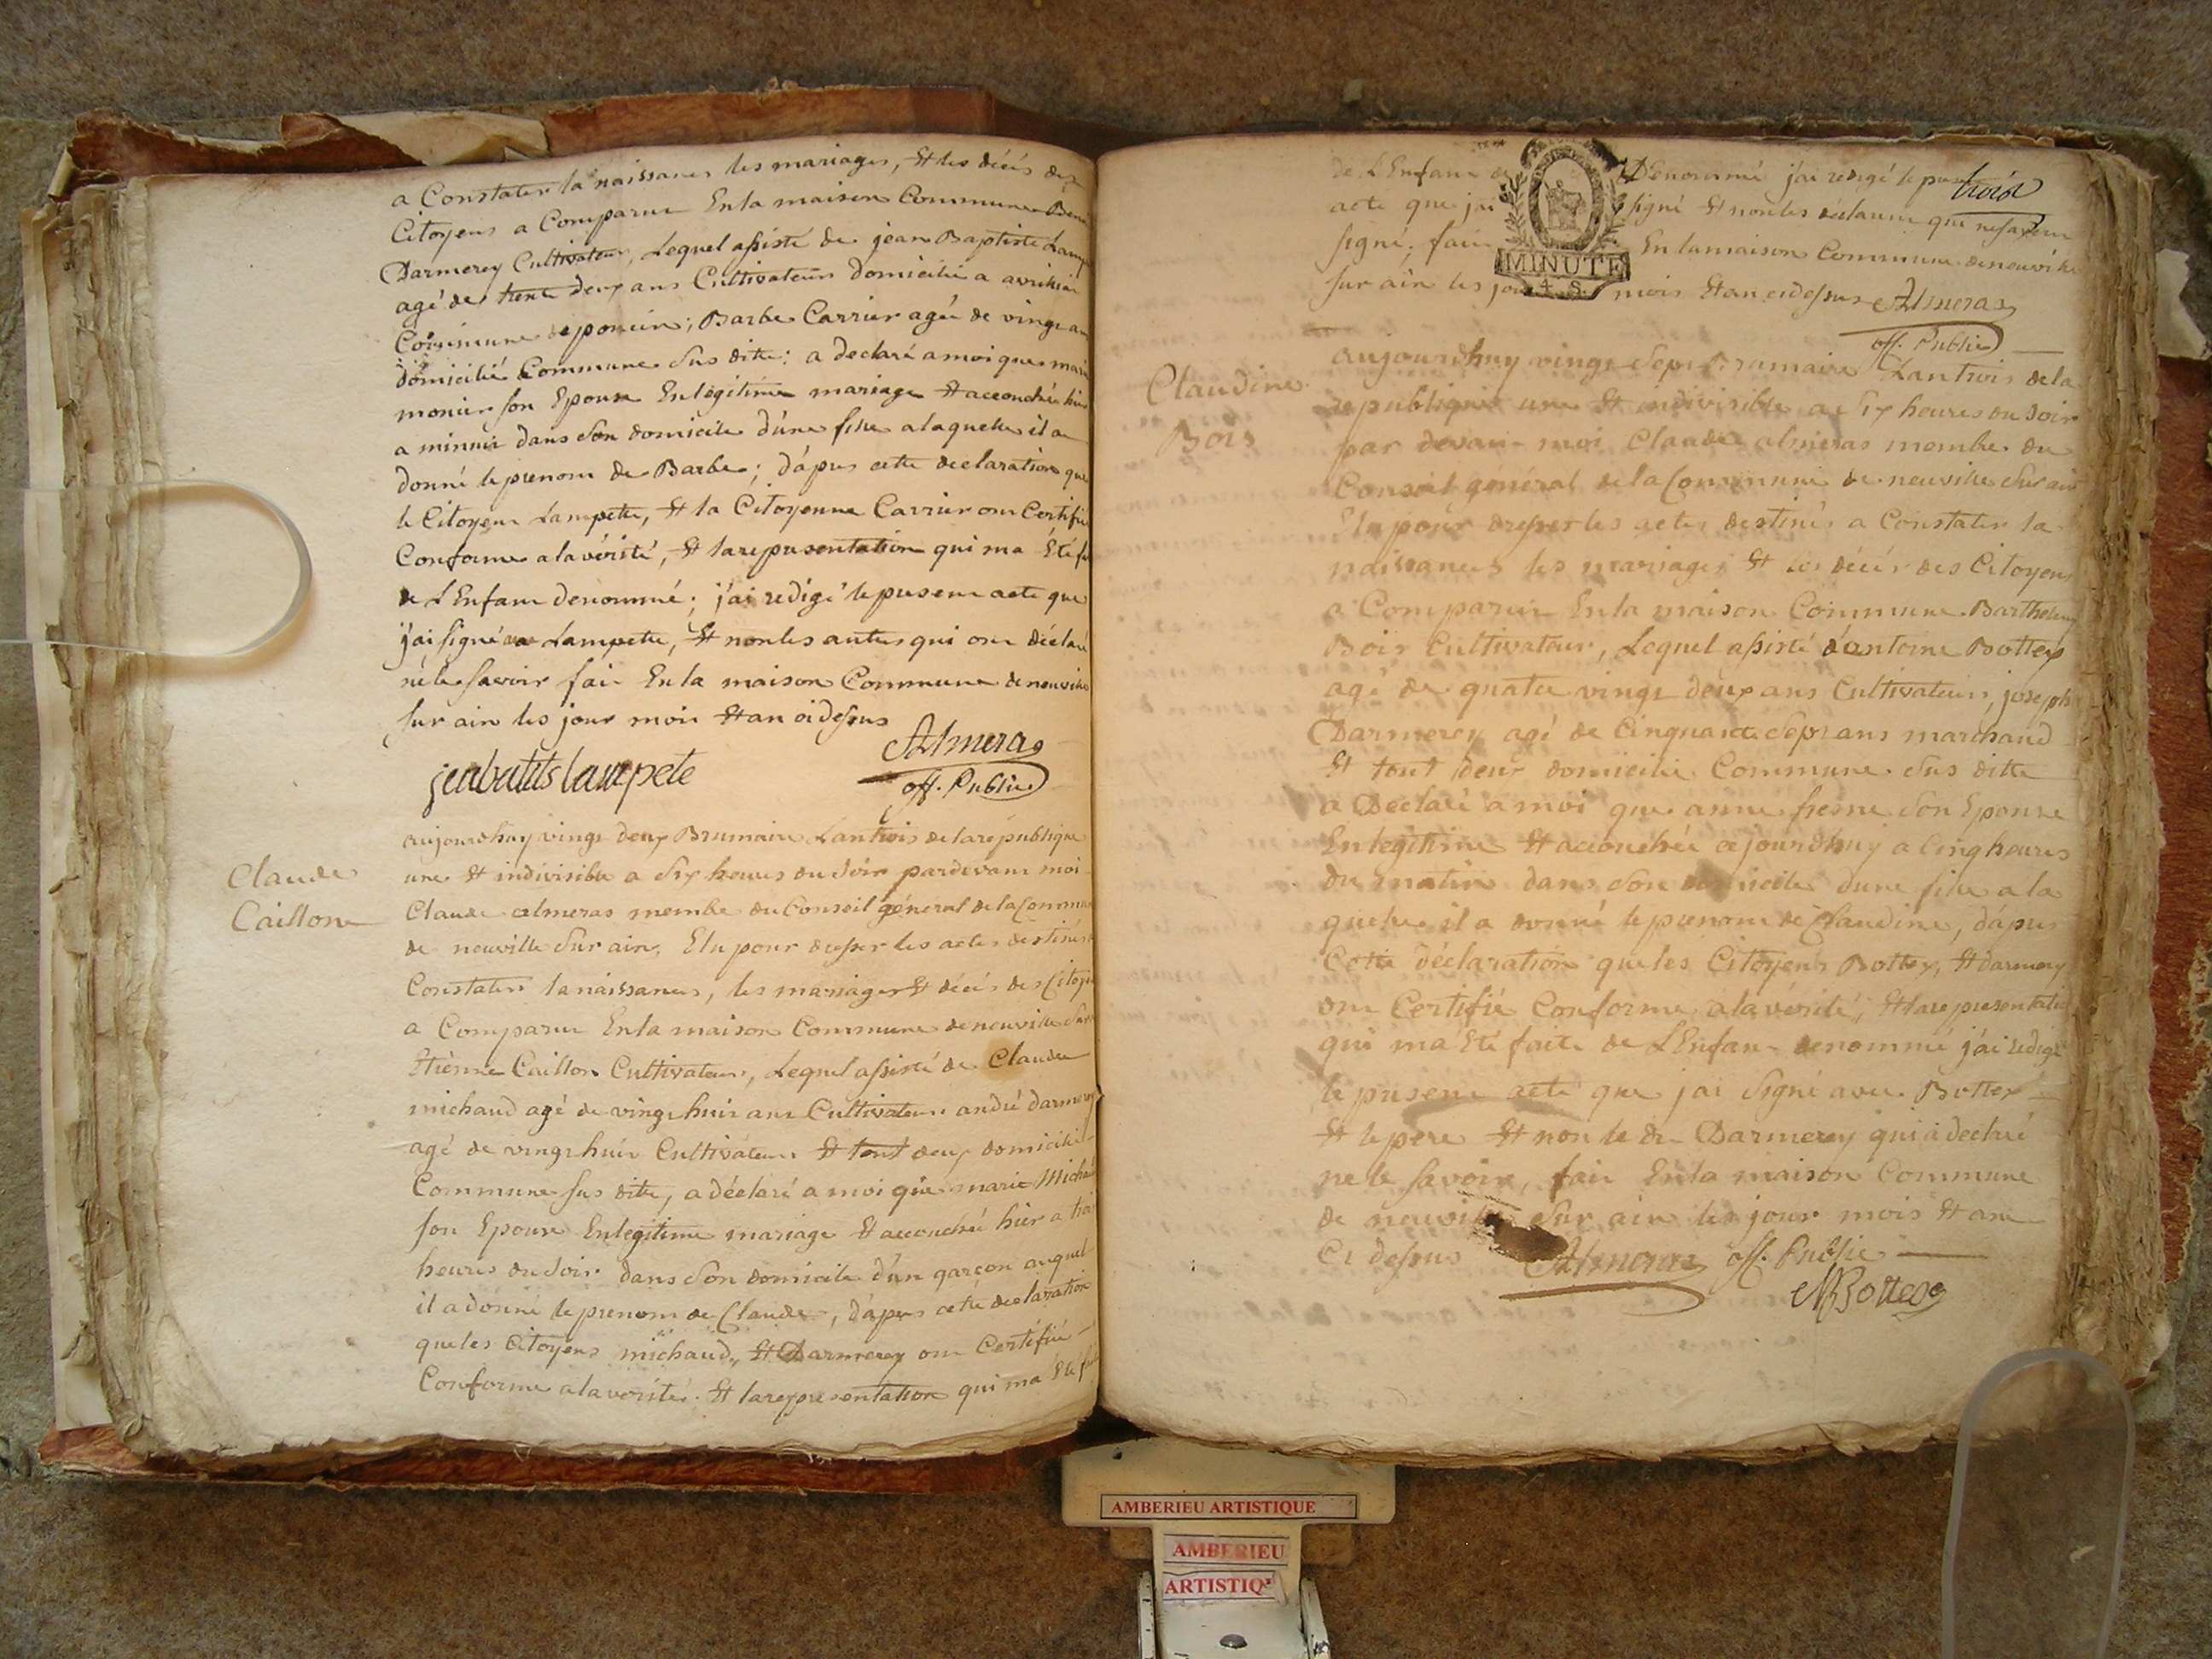 a Constater la naissances les mariages, Et les décés des
Citoyens a Comparue En la maison Commune
Darmerey Cultivateur, Lequel assisté de jean Baptiste Lamp
agé de trent deux ans Cultivateur domicilié a
Commune de poncin; Barbe Carrier agée de vingt an
domicilié Commune sus ditte: a declaré a moi que mari
monier son Epouse En légitime mariage Et accouchée hier
a minuit dans son domicile d'une fille a laquelle il a
donné le prenom de Barbe; d'aprés cette declaration que
le Citoyen Lampette, Et la Citoyenne Carrier ont Certifié
Conforme a la vérité, Et la representation qui ma Eté f
de L'Enfant denommé; j'ai redigé le present acte que
j'ai signé Lampette, Et non les autres qui ont déclaré
ne le savoir fait En la maison Commune de neuville
sur ain les jour mois Et an ci dessus
jeabatits lampete
Almeras
off. Public
Claude
Caillon
aujourd'huy vingt deux Brumaire L'an trois de la république
une Et indivisible a six heures du soir pardevant moi
Claude almeras membre du Conseil général de la Commun
de neuville sur ain, Elu pour dresser les actes destinés
Constater la naissances, les mariages Et décés des Citoye
a Comparue En la maison Commune de neuville sur
Etienne Caillon Cultivateur, Lequel assisté de Claude
michaud agé de vingt huit ans Cultivateur andré darmerey
agé de vingt huit Cultivateur Et tout deux domicilié
Commune sus ditte, a déclaré a moi que marie Micha
son Epouse En legitime mariage Et accouchée hier a troi
heures du soir dans son domicile d'un garçon auquel
il a donné le prenom de Claude, d'aprés cette declaration
que les Citoyens michaud, Et Darmerey ont Certifié
Conforme a la verité. Et la representation qui ma Eté f
de L'Enfant Dénommé j'ai redigé le
trois
acte que j'ai signé Et non les déclarant qui ne savent
signé, fait En la maison Commune de neuville
sur ain les jour mois Et an ci dessus Almeras
off. Public
MINUTE
4. S.
Claudine
Bois
aujourd'huy vingt sept Brumaire L'an trois de la
republique une Et indivisible a six heures du soir
par devant moi Claude almeras membre du
Conseil général de la Commune de neuville sur ain
Elu pour dresser les actes destinés a Constater la
naissances les mariages Et les décés des Citoyens
a Comparue En la maison Commune Barthelemy
Bois Cultivateur, Lequel assisté d'antoine Bottex
agé de quatre vingt deux ans Cultivateur, joseph
Darmerey agé de Cinquante sept ans marchand
Et tout deux domicilié Commune sus ditte
a Declaré a moi que anne fresne son Epouse
En legitime Et accouchée ce jourd'huy a Cinq heures
du matin dans son domicile d'une fille a la
quelle il a donné le prenom de Claudine, d'aprés
Cette déclaration que les Citoyens Bottex, Et darmerey
ont Certifié Conforme a la vérité, Et la representatio
qui ma Eté faite de L'Enfant denommé j'ai redigé
le present acte que j'ai signé avec Bottex
Et le pere Et non le dt Darmerey qui a declaré
ne le savoir, fait En la maison Commune
de neuville sur ain les jour mois Et an
Ci dessus Almeras off. Public
Bottex
AMBERIEU ARTISTIQUE
AMBERIEU
ARTISTIQ